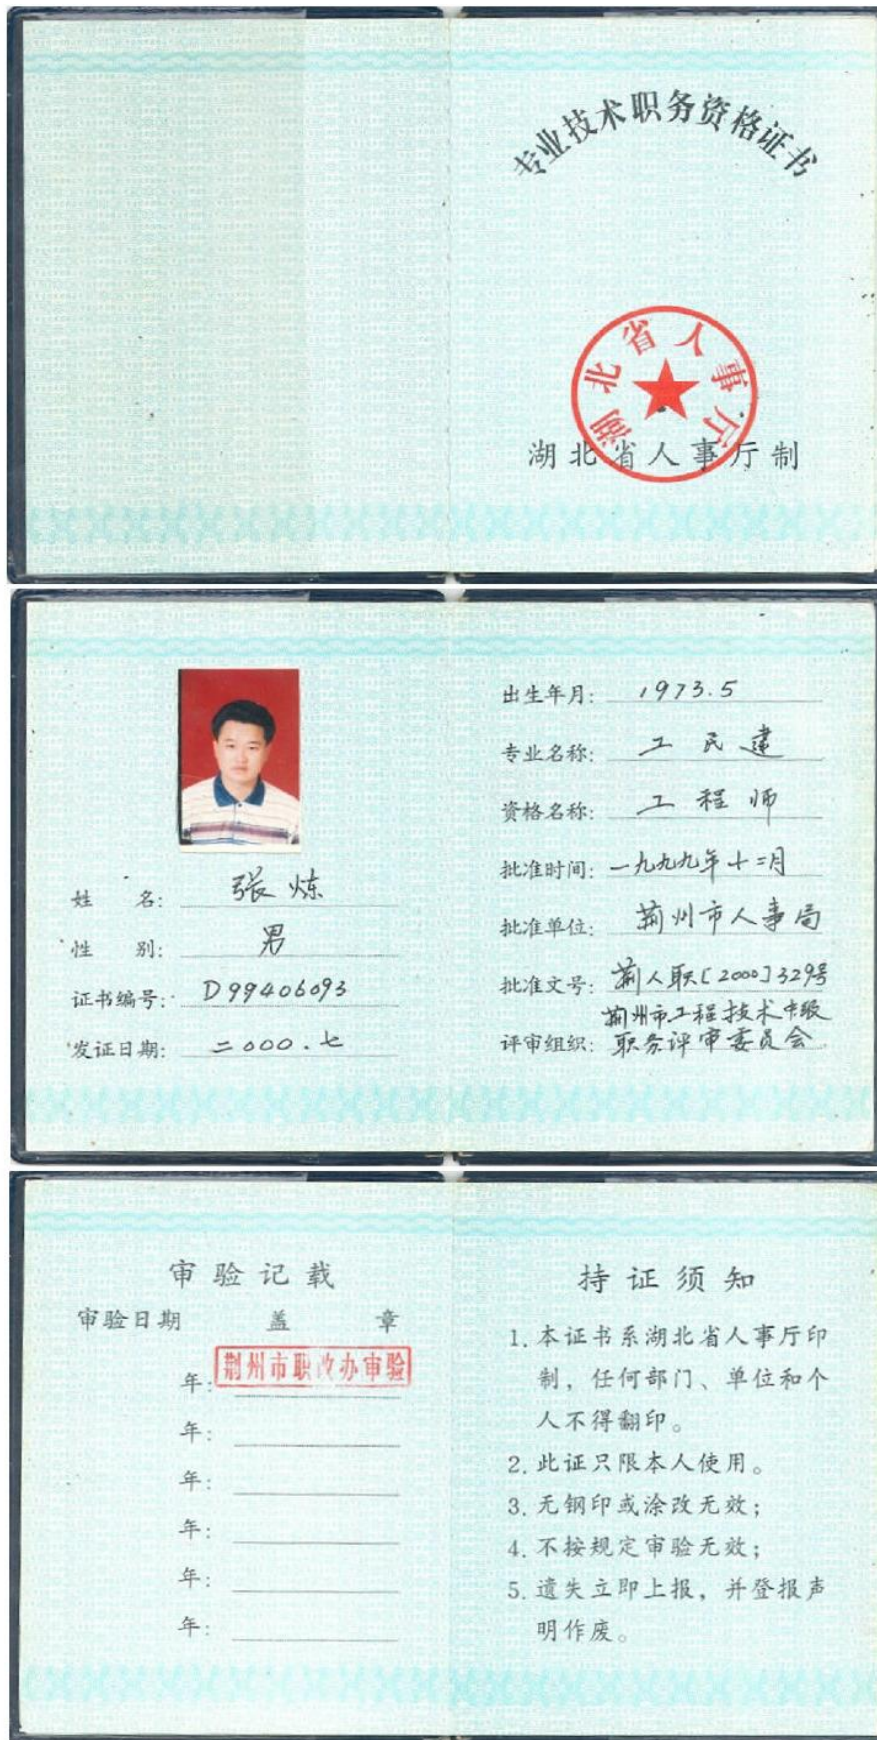 专业技术职务资格证书
湖北省人事厅
湖北省人事厅制
姓 名: 张炼
性 别: 男
证书编号: D99406093
发证日期: 二000.七
出生年月: 1973.5
专业名称: 工民建
资格名称: 工程师
批准时间: 一九九九年十二月
批准单位: 荆州市人事局
批准文号: 荆人职[2000]329号
荆州市工程技术中级
评审组织: 职务评审委员会
审验记载
审验日期 盖 章
年: 荆州市职改办审验
年:
年:
年:
年:
年:
持证须知
1.本证书系湖北省人事厅印
制，任何部门、单位和个
人不得翻印。
2.此证只限本人使用。
3.无钢印或涂改无效；
4.不按规定审验无效；
5.遗失立即上报，并登报声
明作废。